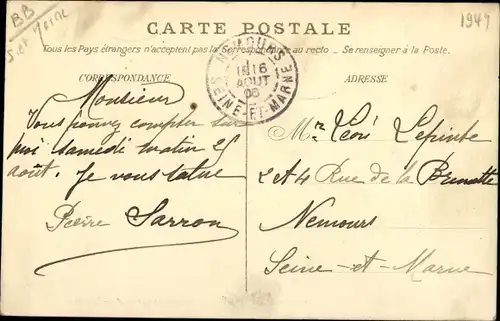 BB
S. et Marne
1947
CARTE POSTALE
Tous les Pays étrangers n'acceptent pas la Correspondance au recto. — Se renseigner à la Poste.
CORRESPONDANCE
ADRESSE
16
AOUT
06
SEINE-ET-MARNE
Monsieur
Vous pouvez compter sur
moi samedi matin 25
août. Je vous salue
Pierre Sarron
Mr. Léon Lepinte
2 et 4 Rue de la
Nemours
Seine-et-Marne